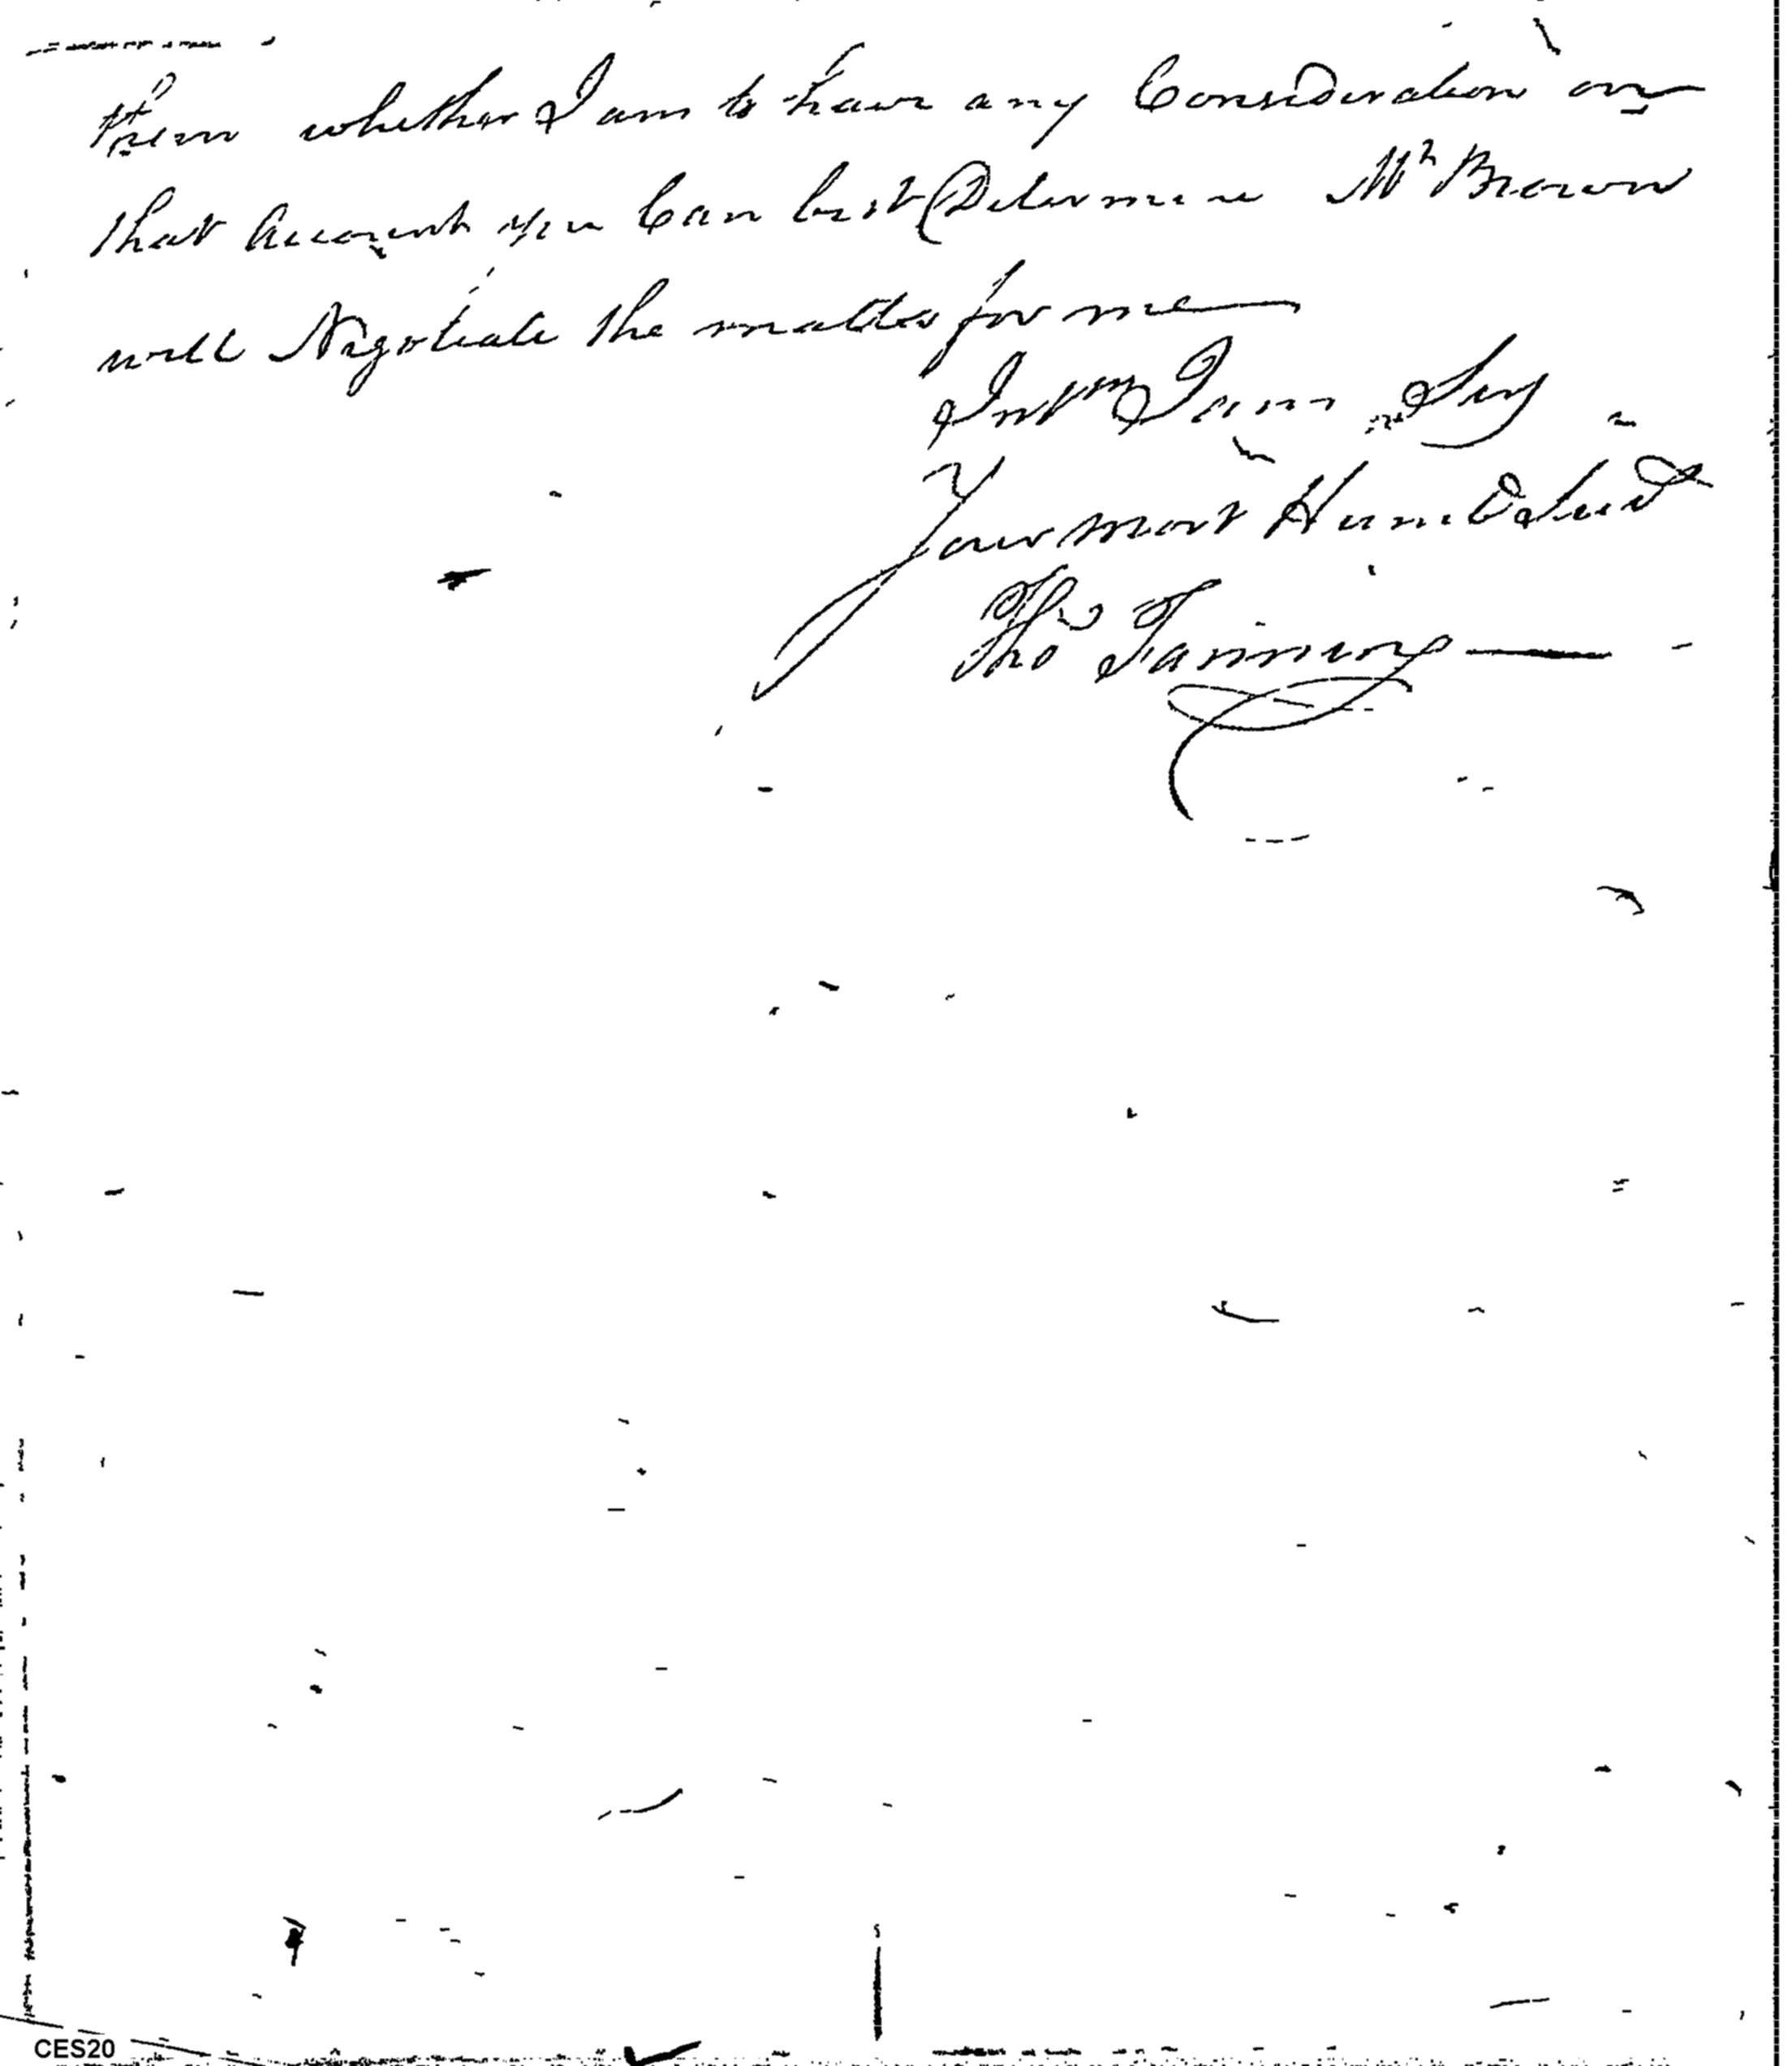 them whether I am to have any Consideration on
that Account you Can best Determine Mr Brown
will Negotiate the matter for me
Int'm I am Sir
Your most Humble Servt
Thos Fanning
CES20